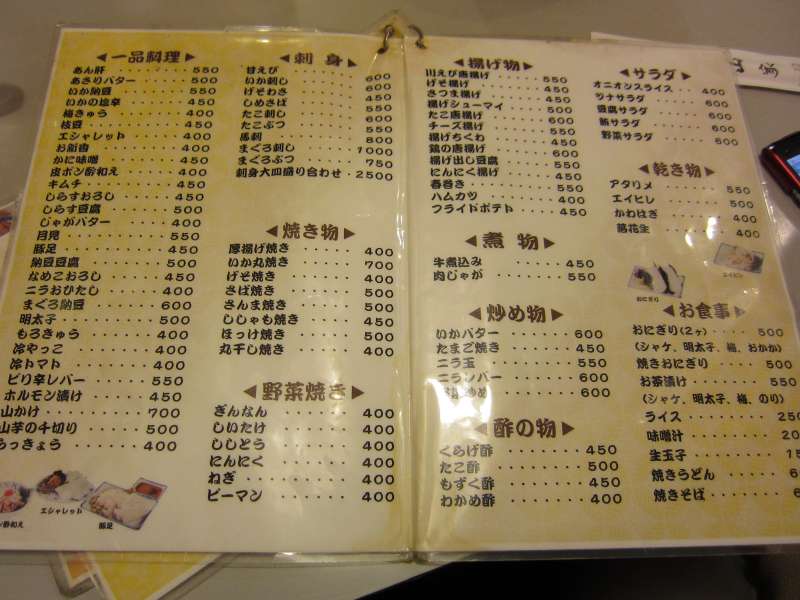 ◀一品料理▶
あん肝 ・・・・・・・ 550
あさりバター ・・・・ 500
いか納豆 ・・・・・・ 550
いかの塩辛 ・・・・・ 450
梅きゅう ・・・・・・ 400
枝豆 ・・・・・・・・ 450
エシャレット ・・・・ 400
お新香 ・・・・・・・ 400
かに味噌 ・・・・・・ 450
皮ポン酢和え ・・・・ 400
キムチ ・・・・・・・ 450
しらすおろし ・・・・ 450
しらす豆腐 ・・・・・ 500
じゃがバター ・・・・ 400
月見 ・・・・・・・・ 550
豚足 ・・・・・・・・ 450
納豆豆腐 ・・・・・・ 500
なめこおろし ・・・・ 450
ニラおひたし ・・・・ 400
まぐろ納豆 ・・・・・ 600
明太子 ・・・・・・・ 500
もろきゅう ・・・・・ 400
冷やっこ ・・・・・・ 400
冷トマト ・・・・・・ 400
ピリ辛レバー ・・・・ 550
ホルモン漬け ・・・・ 450
山かけ ・・・・・・・ 700
山芋の千切り ・・・・ 500
らっきょう ・・・・・ 400
酢和え
エシャレット
豚足
◀刺身▶
甘えび ・・・・・ 600
いか刺し ・・・・ 600
げそわさ ・・・・ 450
しめさば ・・・・ 550
たこ刺し ・・・・ 600
たこぶつ ・・・・ 550
馬刺 ・・・・・・ 800
まぐろ刺し ・・・ 1000
まぐろぶつ ・・・ 750
刺身大皿盛り合わせ ・ 2500
◀焼き物▶
厚揚げ焼き ・・・・ 400
いか丸焼き ・・・・ 700
げそ焼き ・・・・・ 400
さば焼き ・・・・・ 500
さんま焼き ・・・・ 500
ししゃも焼き ・・・ 450
ほっけ焼き ・・・・ 500
丸干し焼き ・・・・ 400
◀野菜焼き▶
ぎんなん ・・・・・ 400
しいたけ ・・・・・ 400
ししとう ・・・・・ 400
にんにく ・・・・・ 400
ねぎ ・・・・・・・ 400
ピーマン ・・・・・ 400
◀揚げ物▶
川えび唐揚げ ・・・ 550
げそ揚げ ・・・・・ 450
さつま揚げ ・・・・ 400
揚げシューマイ ・・ 500
たこ唐揚げ ・・・・ 600
チーズ揚げ ・・・・ 550
揚げちくわ ・・・・ 400
鶏の唐揚げ ・・・・ 600
揚げ出し豆腐 ・・・ 500
にんにく揚げ ・・・ 450
春巻き ・・・・・・ 550
ハムカツ ・・・・・ 500
フライドポテト ・・ 450
◀煮物▶
牛煮込み ・・・・・ 450
肉じゃが ・・・・・ 550
◀炒め物▶
いかバター ・・・・ 600
たまご焼き ・・・・ 450
ニラ玉 ・・・・・・ 550
ニラレバー ・・・・ 600
炒め ・・・・・ 550
◀酢の物▶
くらげ酢 ・・・・・ 450
たこ酢 ・・・・・・ 500
もずく酢 ・・・・・ 450
わかめ酢 ・・・・・ 400
◀サラダ▶
オニオンスライス ・・ 400
ツナサラダ ・・・・ 600
豆腐サラダ ・・・・ 600
鮪サラダ ・・・・・ 600
野菜サラダ ・・・・ 500
◀乾き物▶
アタリメ ・・・・・ 550
エイヒレ ・・・・・ 500
かわはぎ ・・・・・ 400
落花生 ・・・・・・ 400
おにぎり
エイヒレ
◀お食事▶
おにぎり(2ヶ) ・・・ 500
(シャケ、明太子、梅、おかか)
焼きおにぎり ・・・ 500
お茶漬け ・・・・・ 550
(シャケ、明太子、梅、のり)
ライス ・・・・・・ 250
味噌汁 ・・・・・・ 20
生玉子 ・・・・・・ 15
焼きうどん ・・・・ 6
焼きそば ・・・・・ 6